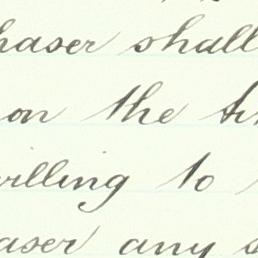 haser shall
on the
willing to
aser any